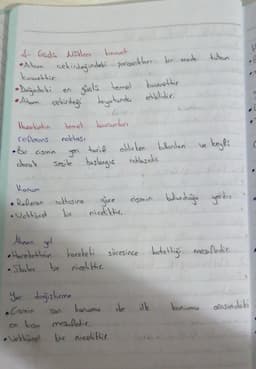 4- Güçlü Nükleer kuvvet
• Atom çekirdeğindeki parçacıkları bir arada tutan
kuvvettir.
• Doğadaki en güçlü temel kuvvettir
• Atom çekirdeği boyutunda etkilidir.
Hareketin temel kavramları
referans noktası
• Bir cismin yeri tarif edilirken kullanılan ve keyfi
olarak seçile başlangıç noktasıdır.
Konum
• Referans noktasına göre cismin bulunduğu yerdir.
• Vektörel bir niceliktir.
Alınan yol
• Hareketlinin hareketi süresince katettiği mesafedir.
• Skaler bir niceliktir.
Yer değiştirme
• Cismin son konumu ile ilk konumu arasındaki
en kısa mesafedir.
• Vektörel bir niceliktir.